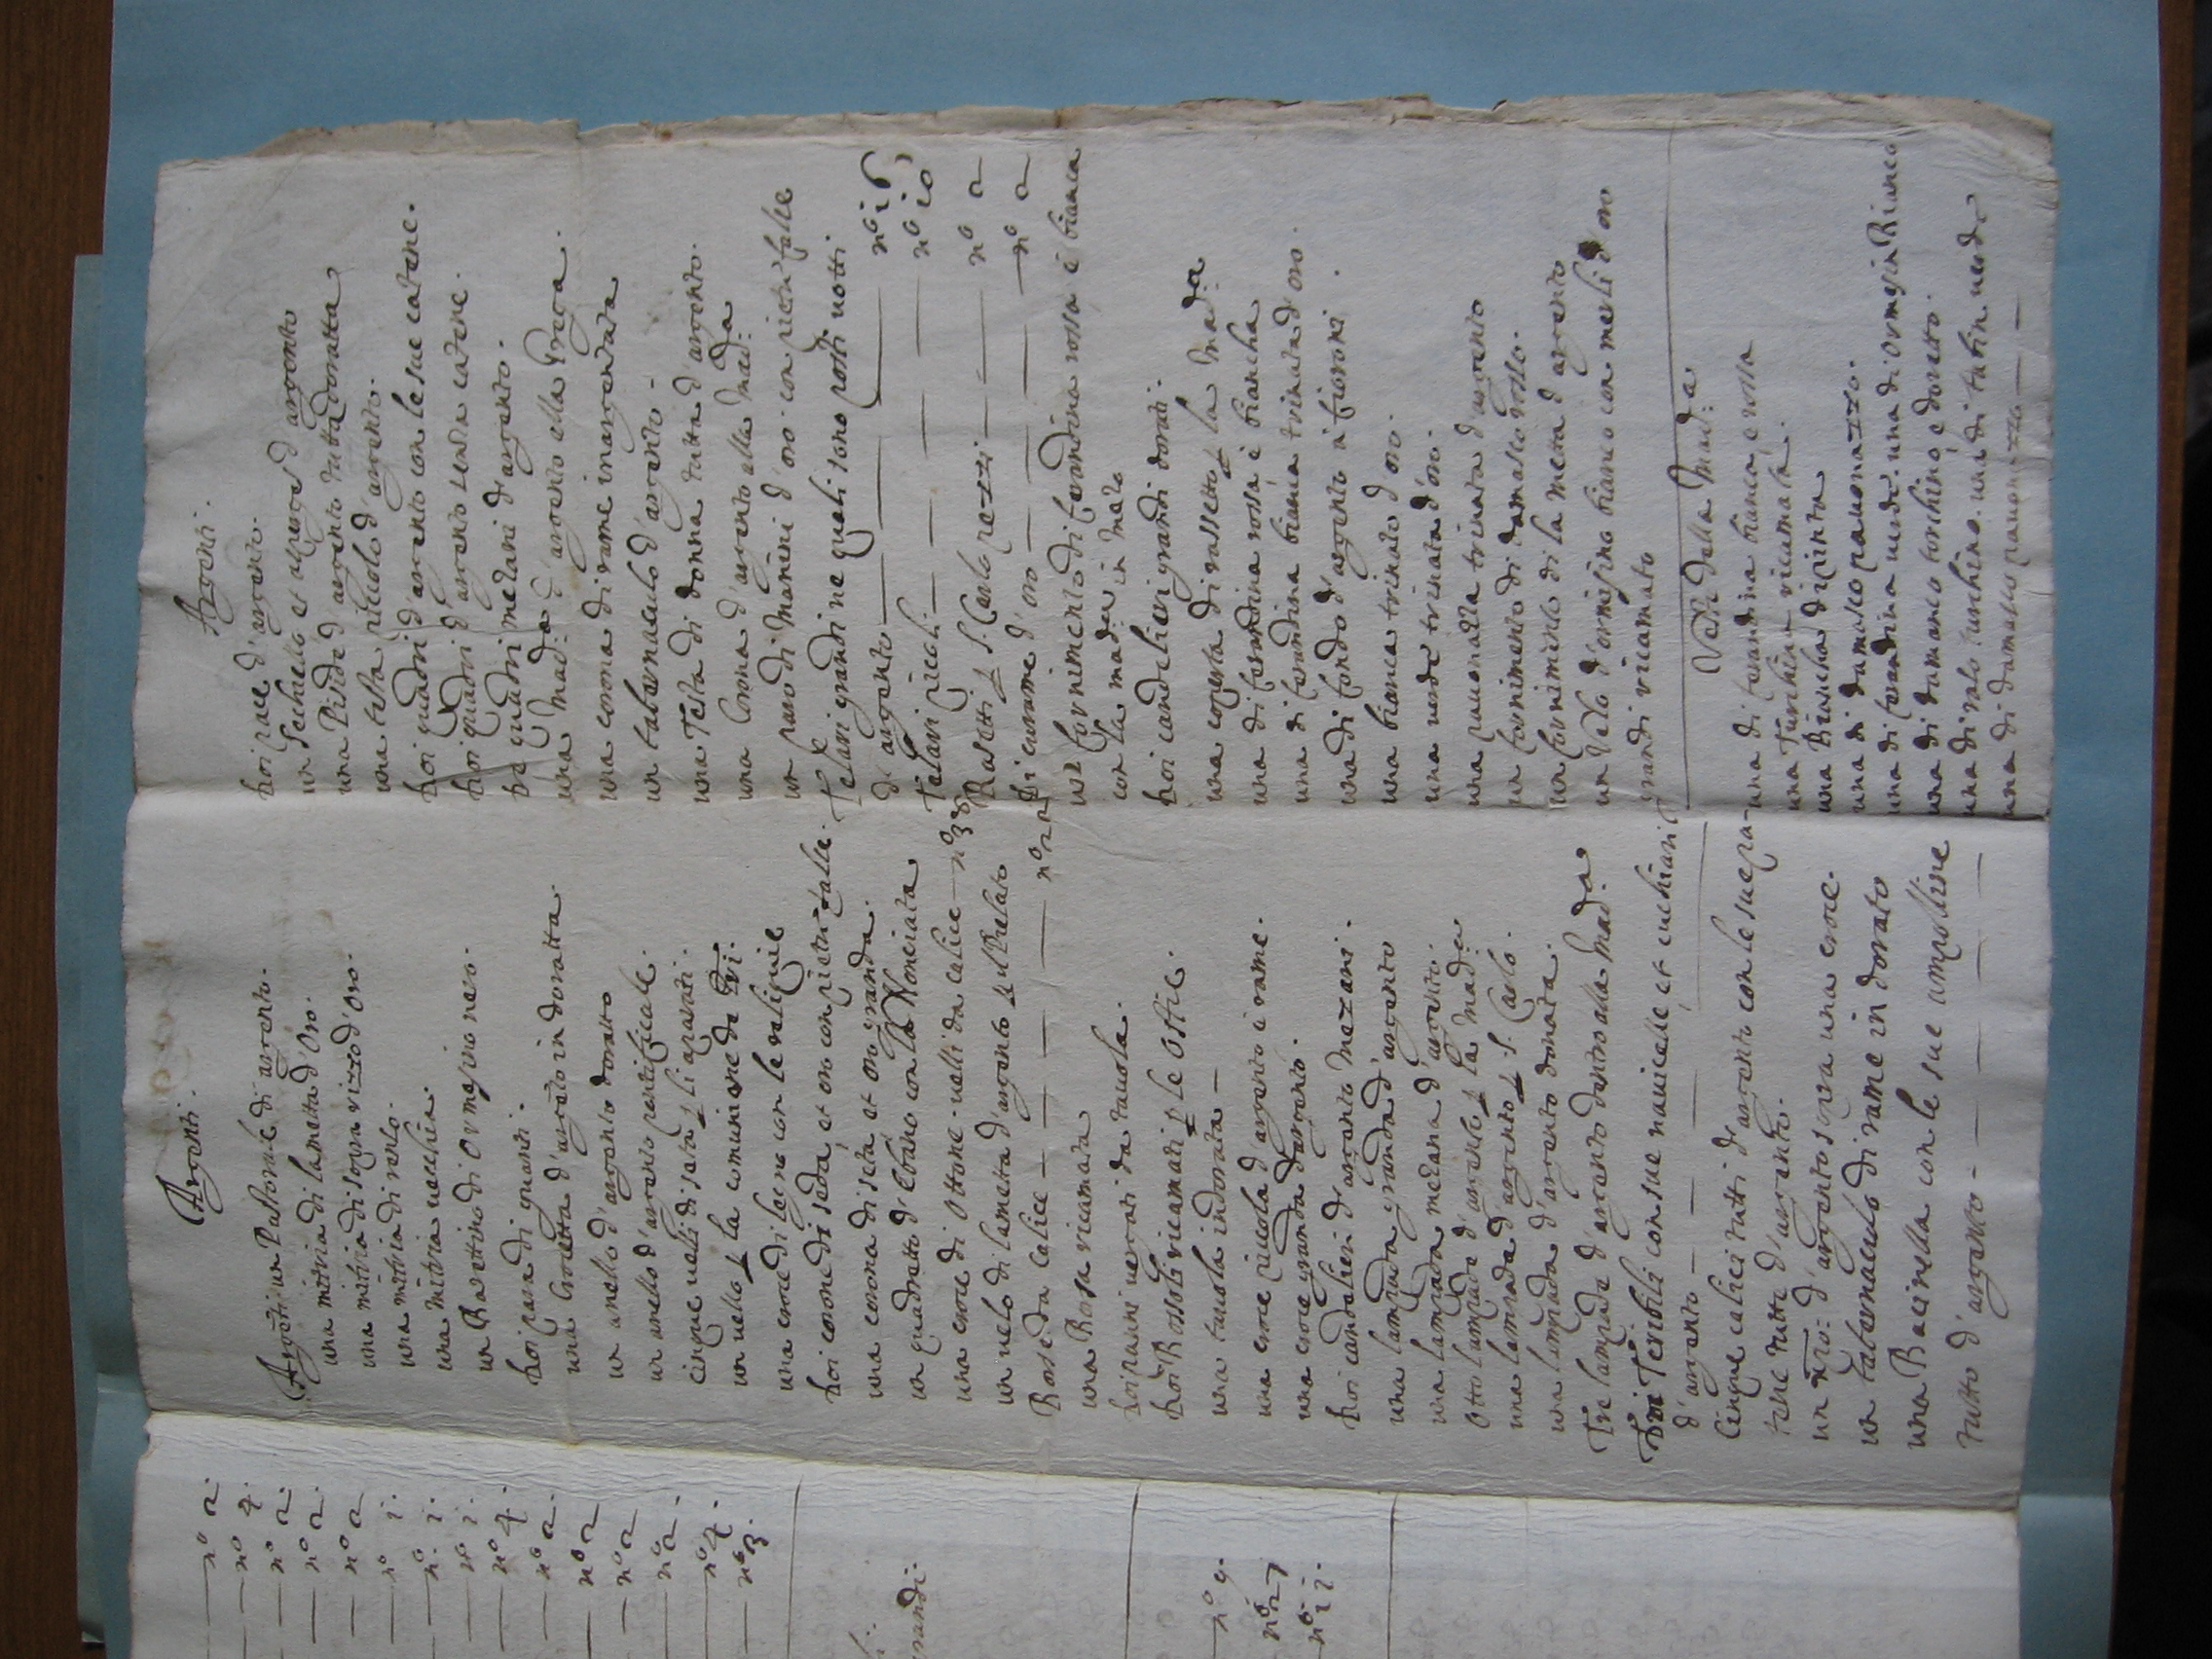 n° 2.
n° 4.
n° 2.
n° 2.
n° 2
n° i.
n° i.
n° i.
n° 4.
n° 2.
n° 2
n° 2
n° 2.
n° 4.
n° 3.
grandi.
n° 9.
n° 27
n° ii.
Argenti.
Argẽti un Pastorale di argento.
una mitria di lametta d'oro.
una mitria di sopra rizzo d'oro.
una mitria di renso.
una mitria vecchia.
un Barettino di Ormesino nero.
doi para di guanti.
una Crocetta d'argẽto in doratta.
un anello d'argento doratto
un anello d'argento pontificale.
cinque velli di seta p li aparati.
un vello p la comunione da
una croce di legno con le reliquie
doi corone di seda, et oro con pietre false.
una corona di seta et oro granda.
un quadretto d'Ebano con la Nonciata
una croce di Ottone. velli da calice — n° 38
un velo di lametta d'argento p il Prelato
Borse da calice — n° 22
una Borsa ricamata
doi panni vergati da tavola.
doi Bossoli ricamati p le Ostie.
una tavola indorata —
una croce picola d'argento è rame.
una croce granda d'argento.
doi candelieri d'argento mezani.
una lampada granda d'argento
una lampada mezana d'argento.
Otto lampade d'argento p la mad:a
una lampada d'argento p S. Carlo.
una lampada d'argento donata.
Tre lampade d'argento dentro alla Mad:a
Doi Teribili con sue navicelle, et cuchiari
d'argento —
Cinque calici tutti d'argento con le sue pa-
tene tutte d'argento.
un d'argento sopra una croce.
un tabernaculo di rame in dorato
una Bacinella con le sue ampolline
tutto d'argento —
Argenti.
doi pace d'argento.
un Sechiello et asperges d'argento
una Piside d'argento tutta doratta
una testa picola d'argento.
doi quadri d'argento con le sue catene.
doi quadri d'argento senza catene.
quadri mezani d'argento.
una Mad:a d'argento ella Prega.
una corona di rame inargentata
un tabernaculo d'argento —
una Testa di donna tutta d'argento.
una Corona d'argento alla Mad:a
un paro di Manini d'oro con pietre false
Telari grandi ne quali sono posti votti
di argento — n° i6
Telari piccoli — n° i0
Rasetti p S. Carlo pezzi — n° 2
di curame d'oro — n° 2
un fornimento di ferandina rossa è bianca
con la mad:a in mezo
doi candelieri grandi dorati.
una coperta di rossetto p la Mad:a
una di ferandina rossa è biancha
una di ferandina bianca trinata d'oro.
una di fondo d'argento à fioroni.
una bianca trinata d'oro.
una verde trinata d'oro.
una pavonazza trinata d'argento
un fornimento di damasco rosso.
un fornimento di la mezza d'argento
un Velo d'ormesino bianco con merli d'oro
grandi ricamato
Veste della Mad:a
una di ferandina bianca, e rossa
una Turchina ricamata.
una Biancha dipinta
una di damasco pavonazzo.
una di ferandina verde. una di ormesin Bianco
una di damasco torchino, e doretto.
una di raso turchino. una di tabin verde
una di damasco pavonazzo —